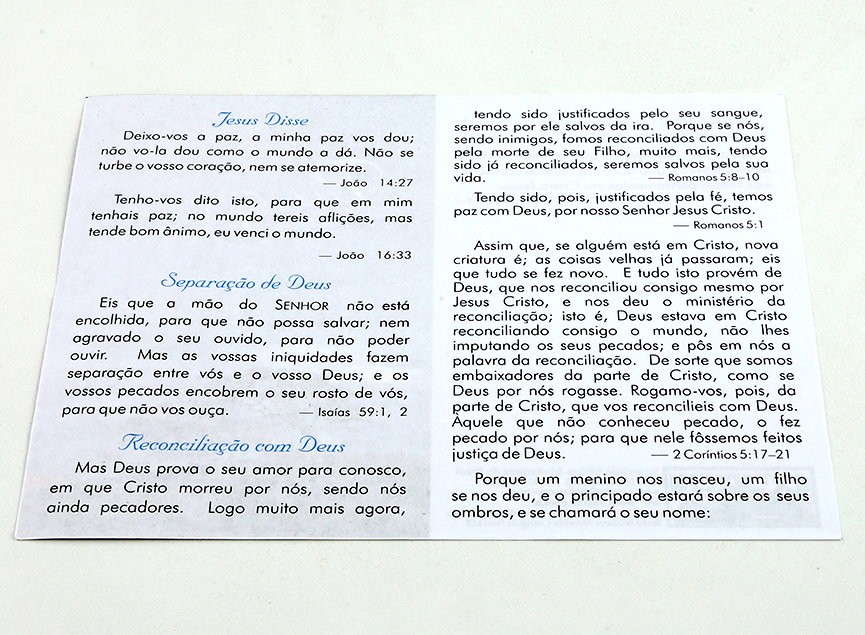 Jesus Disse
Deixo-vos a paz, a minha paz vos dou;
não vo-la dou como o mundo a dá. Não se
turbe o vosso coração, nem se atemorize.
— João 14:27
Tenho-vos dito isto, para que em mim
tenhais paz; no mundo tereis aflições, mas
tende bom ânimo, eu venci o mundo.
— João 16:33
Separação de Deus
Eis que a mão do SENHOR não está
encolhida, para que não possa salvar; nem
agravado o seu ouvido, para não poder
ouvir. Mas as vossas iniquidades fazem
separação entre vós e o vosso Deus; e os
vossos pecados encobrem o seu rosto de vós,
para que não vos ouça. — Isaías 59:1, 2
Reconciliação com Deus
Mas Deus prova o seu amor para conosco,
em que Cristo morreu por nós, sendo nós
ainda pecadores. Logo muito mais agora,
tendo sido justificados pelo seu sangue,
seremos por ele salvos da ira. Porque se nós,
sendo inimigos, fomos reconciliados com Deus
pela morte de seu Filho, muito mais, tendo
sido já reconciliados, seremos salvos pela sua
vida. — Romanos 5:8–10
Tendo sido, pois, justificados pela fé, temos
paz com Deus, por nosso Senhor Jesus Cristo.
— Romanos 5:1
Assim que, se alguém está em Cristo, nova
criatura é; as coisas velhas já passaram; eis
que tudo se fez novo. E tudo isto provém de
Deus, que nos reconciliou consigo mesmo por
Jesus Cristo, e nos deu o ministério da
reconciliação; isto é, Deus estava em Cristo
reconciliando consigo o mundo, não lhes
imputando os seus pecados; e pôs em nós a
palavra da reconciliação. De sorte que somos
embaixadores da parte de Cristo, como se
Deus por nós rogasse. Rogamo-vos, pois, da
parte de Cristo, que vos reconcilieis com Deus.
Àquele que não conheceu pecado, o fez
pecado por nós; para que nele fôssemos feitos
justiça de Deus. — 2 Coríntios 5:17–21
Porque um menino nos nasceu, um filho
se nos deu, e o principado estará sobre os seus
ombros, e se chamará o seu nome: